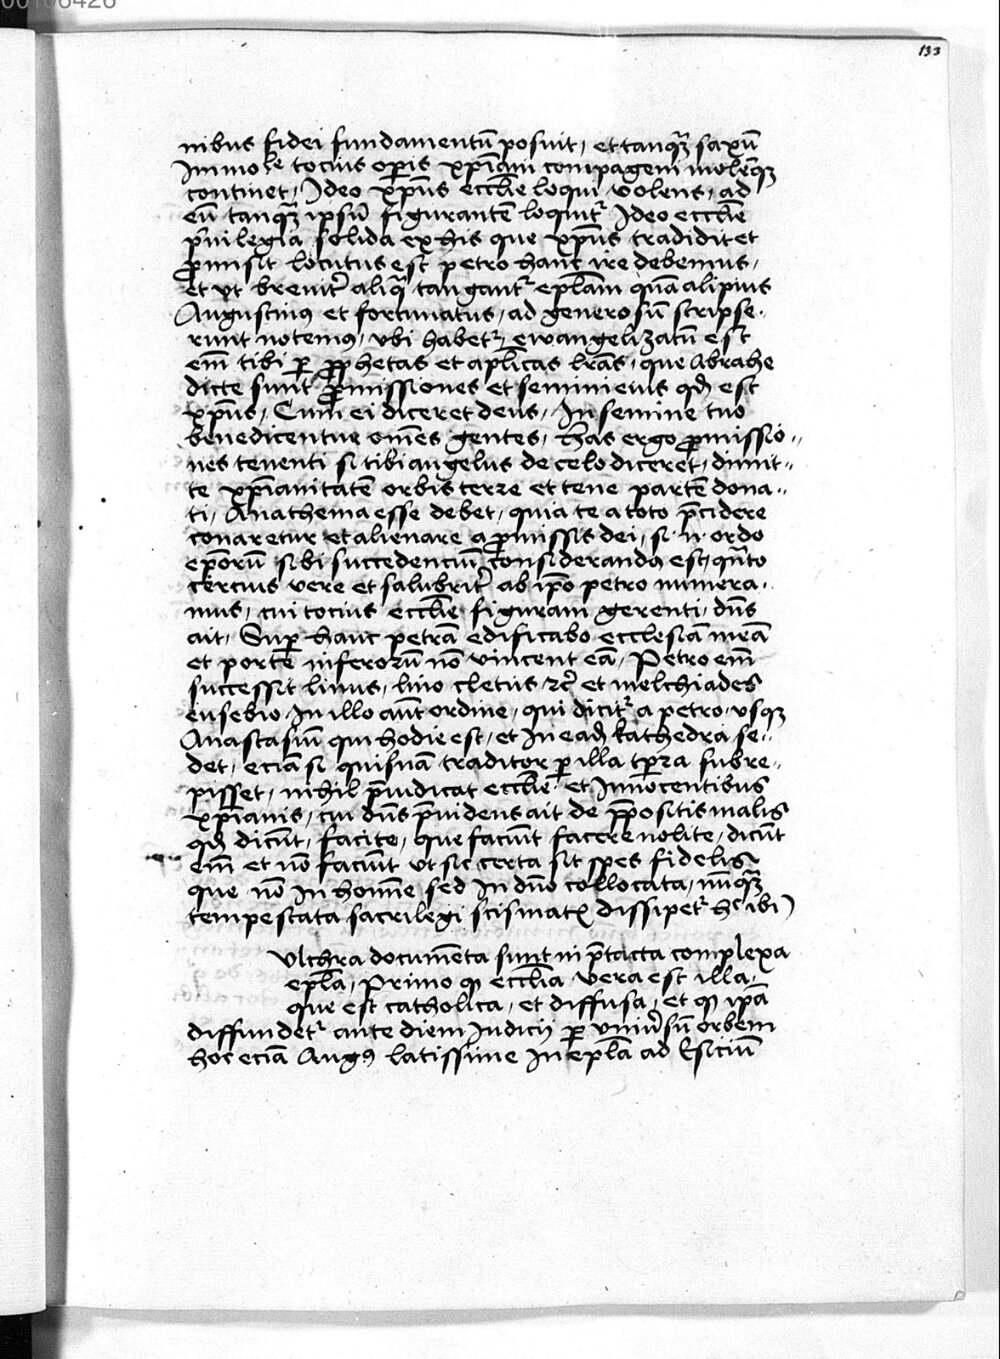 00106426
133
nibus fidei fundamentū posuit, et tanq̄ȝ saxū
Immobile tocius operis xp̄iani compagem molēqȝ
continet, Ideo xp̄us eccl̄ie loqui volens, ad
eū tanq̄ȝ ipsū figurantē loquitr̄ Ideo eccl̄ie
p̄uilegia solida ex his que xp̄us tradidit et
ꝓmisit locutus est petro hauc̄ire debemus,
et vt breuitr̄ aliq̄ tangantr̄ epl̄am quā alipius
Augustinꝰ et fortunatus, ad generosū scripse-
runt notemꝰ, vbi habetr̄, ewangelizatū est
em̄ tibi ꝑ ꝓphetas et apl̄icas lr̄as, que Abrahe
dicte sunt ꝓmissiones et semini eius qd̄ est
xp̄us, Cum ei diceret deus, In semine tuo
benedicentur om̄es gentes, has ergo ꝓmissio-
nes tenenti si tibi angelus de celo diceret, dimit-
te xp̄ianitatē orbis terre et tene partē dona-
ti, Anathema esse debet, quia te a toto p̄cidere
conaretur et alienare a ꝓmissis dei, si n̄ ordo
ep̄orū sibi succedenciū considerandꝰ est, qn̄to
cercius vere et salubritr̄ ab ip̄o petro numera-
mus, cui tocius eccl̄ie figuram gerenti, dn̄s
ait, Suꝑ hanc petrā edificabo ecclesiā meā
et porte inferorū nō vincent eā, Petro em̄
successit linus, lino cletus ⁊c̄ et melchiades
eusebio In illo aūt ordine, qui dicitr̄ a petro vsqȝ
Anastasiū qui hodie est, et In ead̄ kathedra se-
det, eciā si quisuā traditor ꝑ illa tp̄ra subre-
pisset, nihil p̄iudicat eccl̄ie et Innocentibus
xp̄ianis, cui dn̄s p̄uidens ait de p̄positis malis
qd̄ dicūt, facite, que faciūt facere nolite, dicūt
em̄ et nō faciūt ut sic certa sit spes fidelis
que nō In hom̄ie sed In dn̄o collocata, nūq̄ȝ
tempestata sacrilegi scismatꝭ dissipetr̄ hc̄ ibi
vlchra documēta sunt in p̄tacta complexa
epl̄a, Primo qꝫ eccl̄ia vera est illa,
que est catholica, et diffusa, et qꝫ ip̄a
diffundetr̄ ante diem Iudicij ꝑ vniūsū orbem
hoc eciā Augꝰ latissime In epl̄a ad Esiciū